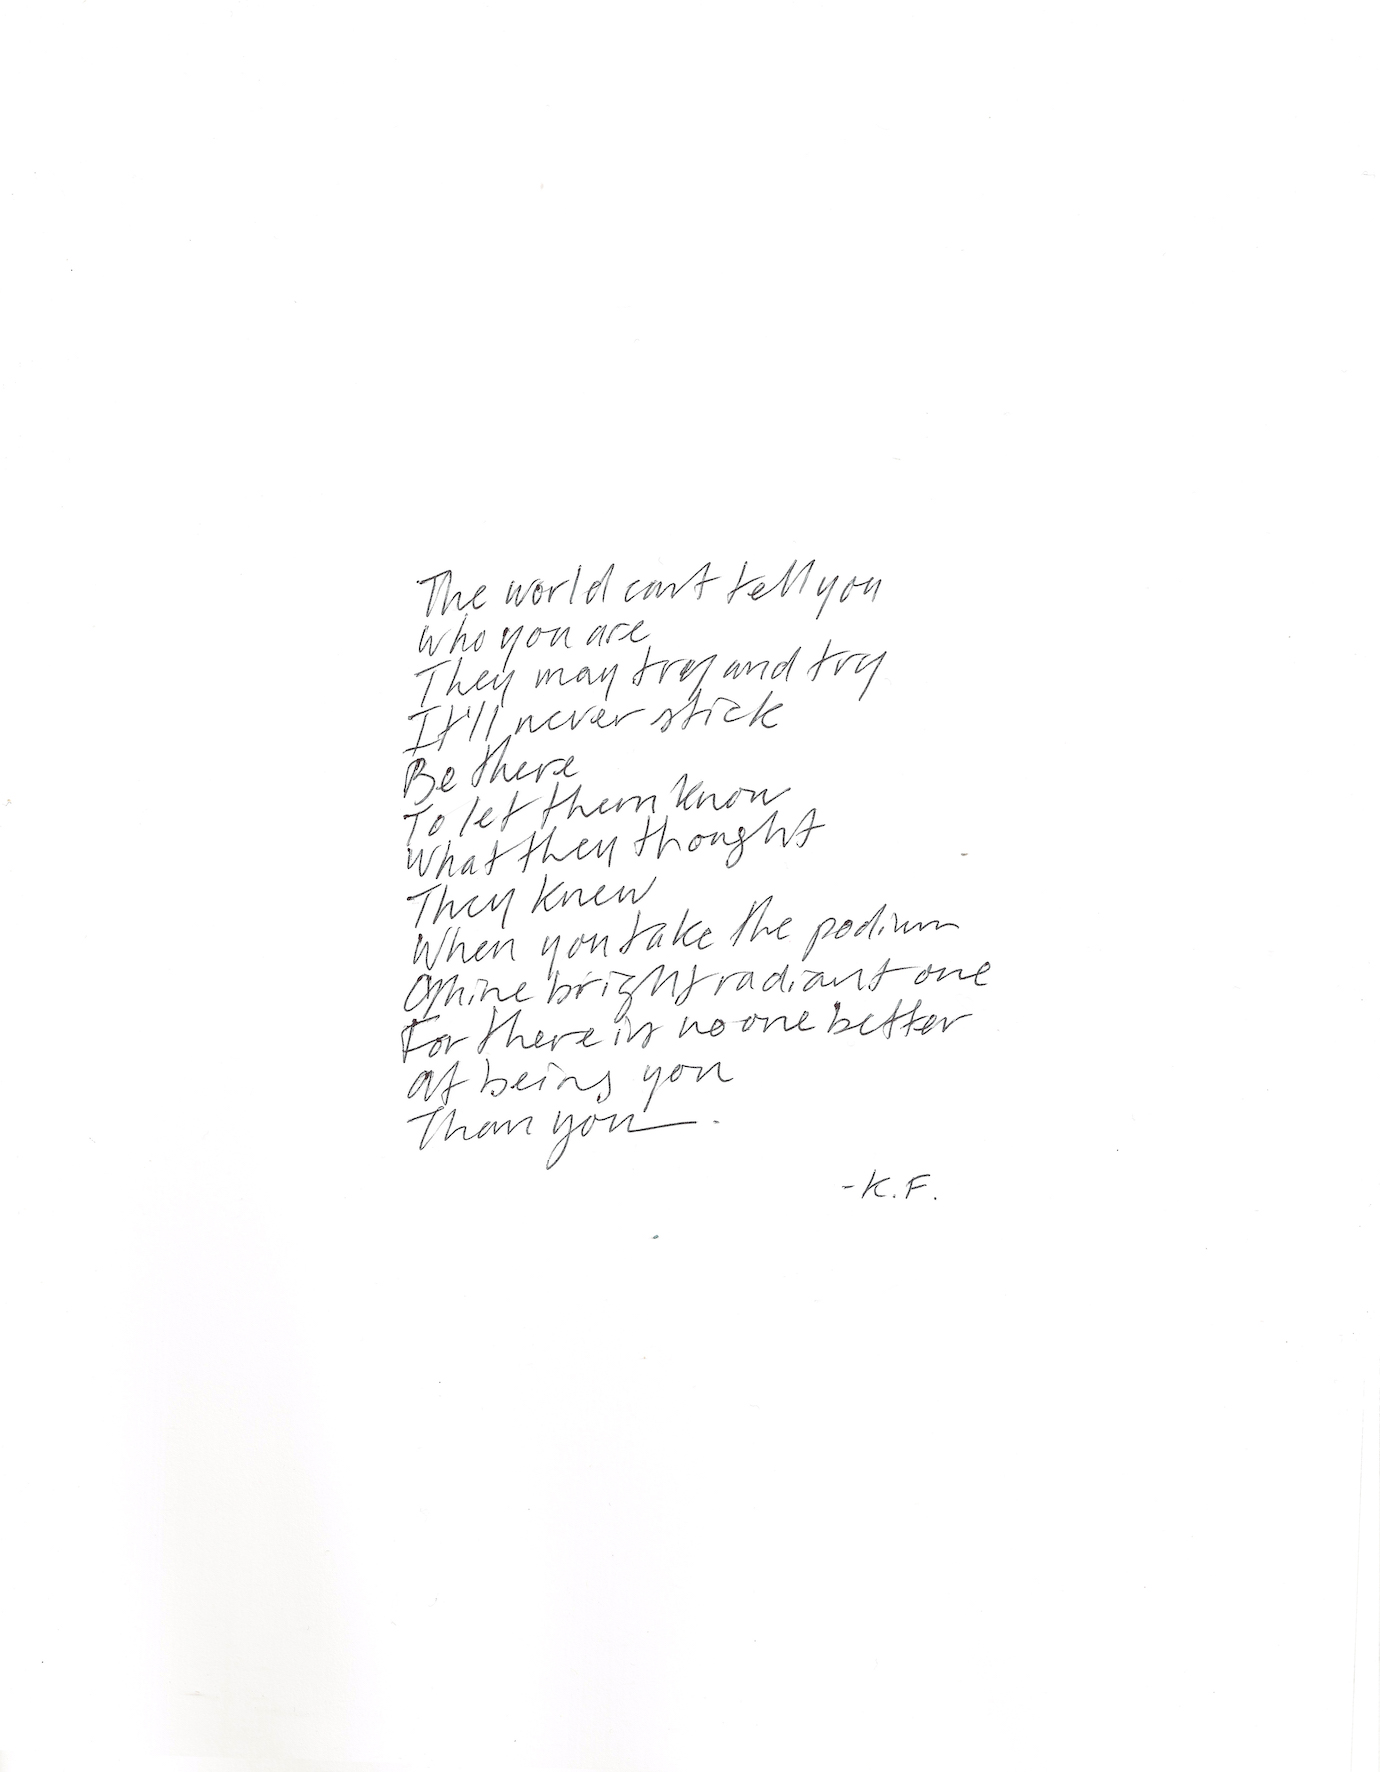 The world can't tell you
who you are
They may try and try
It'll never stick
Be there
To let them know
What they thought
They knew
When you take the podium
Shine bright radiant one
For there is no one better
at being you
Than you.
-K.F.